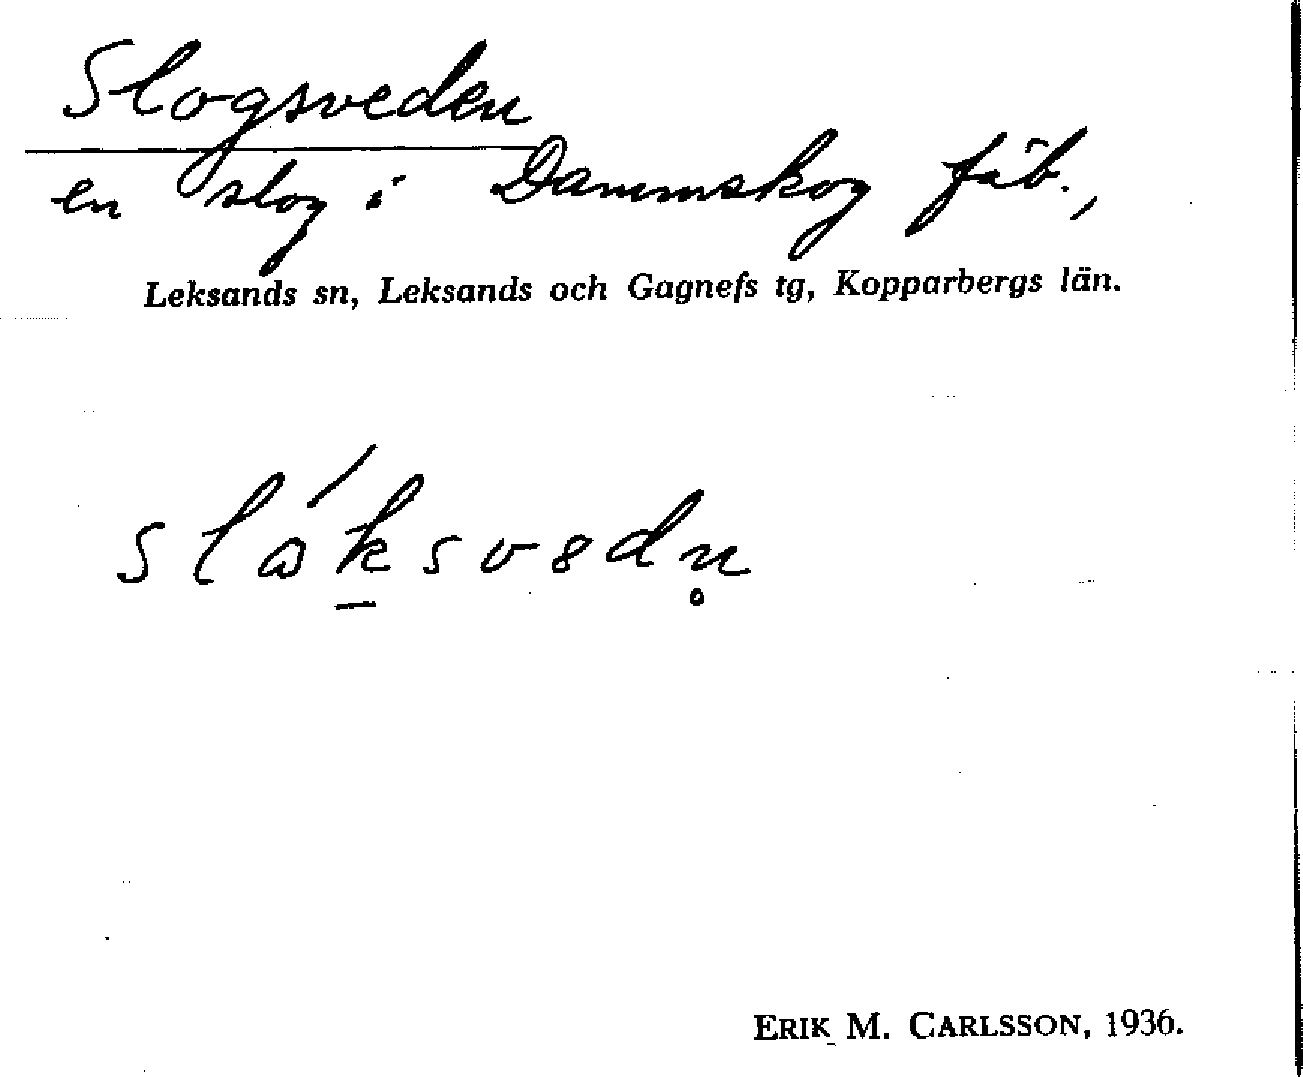 Slogsveden
en slog i Dammskog fäb.,
Leksands sn, Leksands och Gagnefs tg, Kopparbergs län.
ERIK M. CARLSSON, 1936.